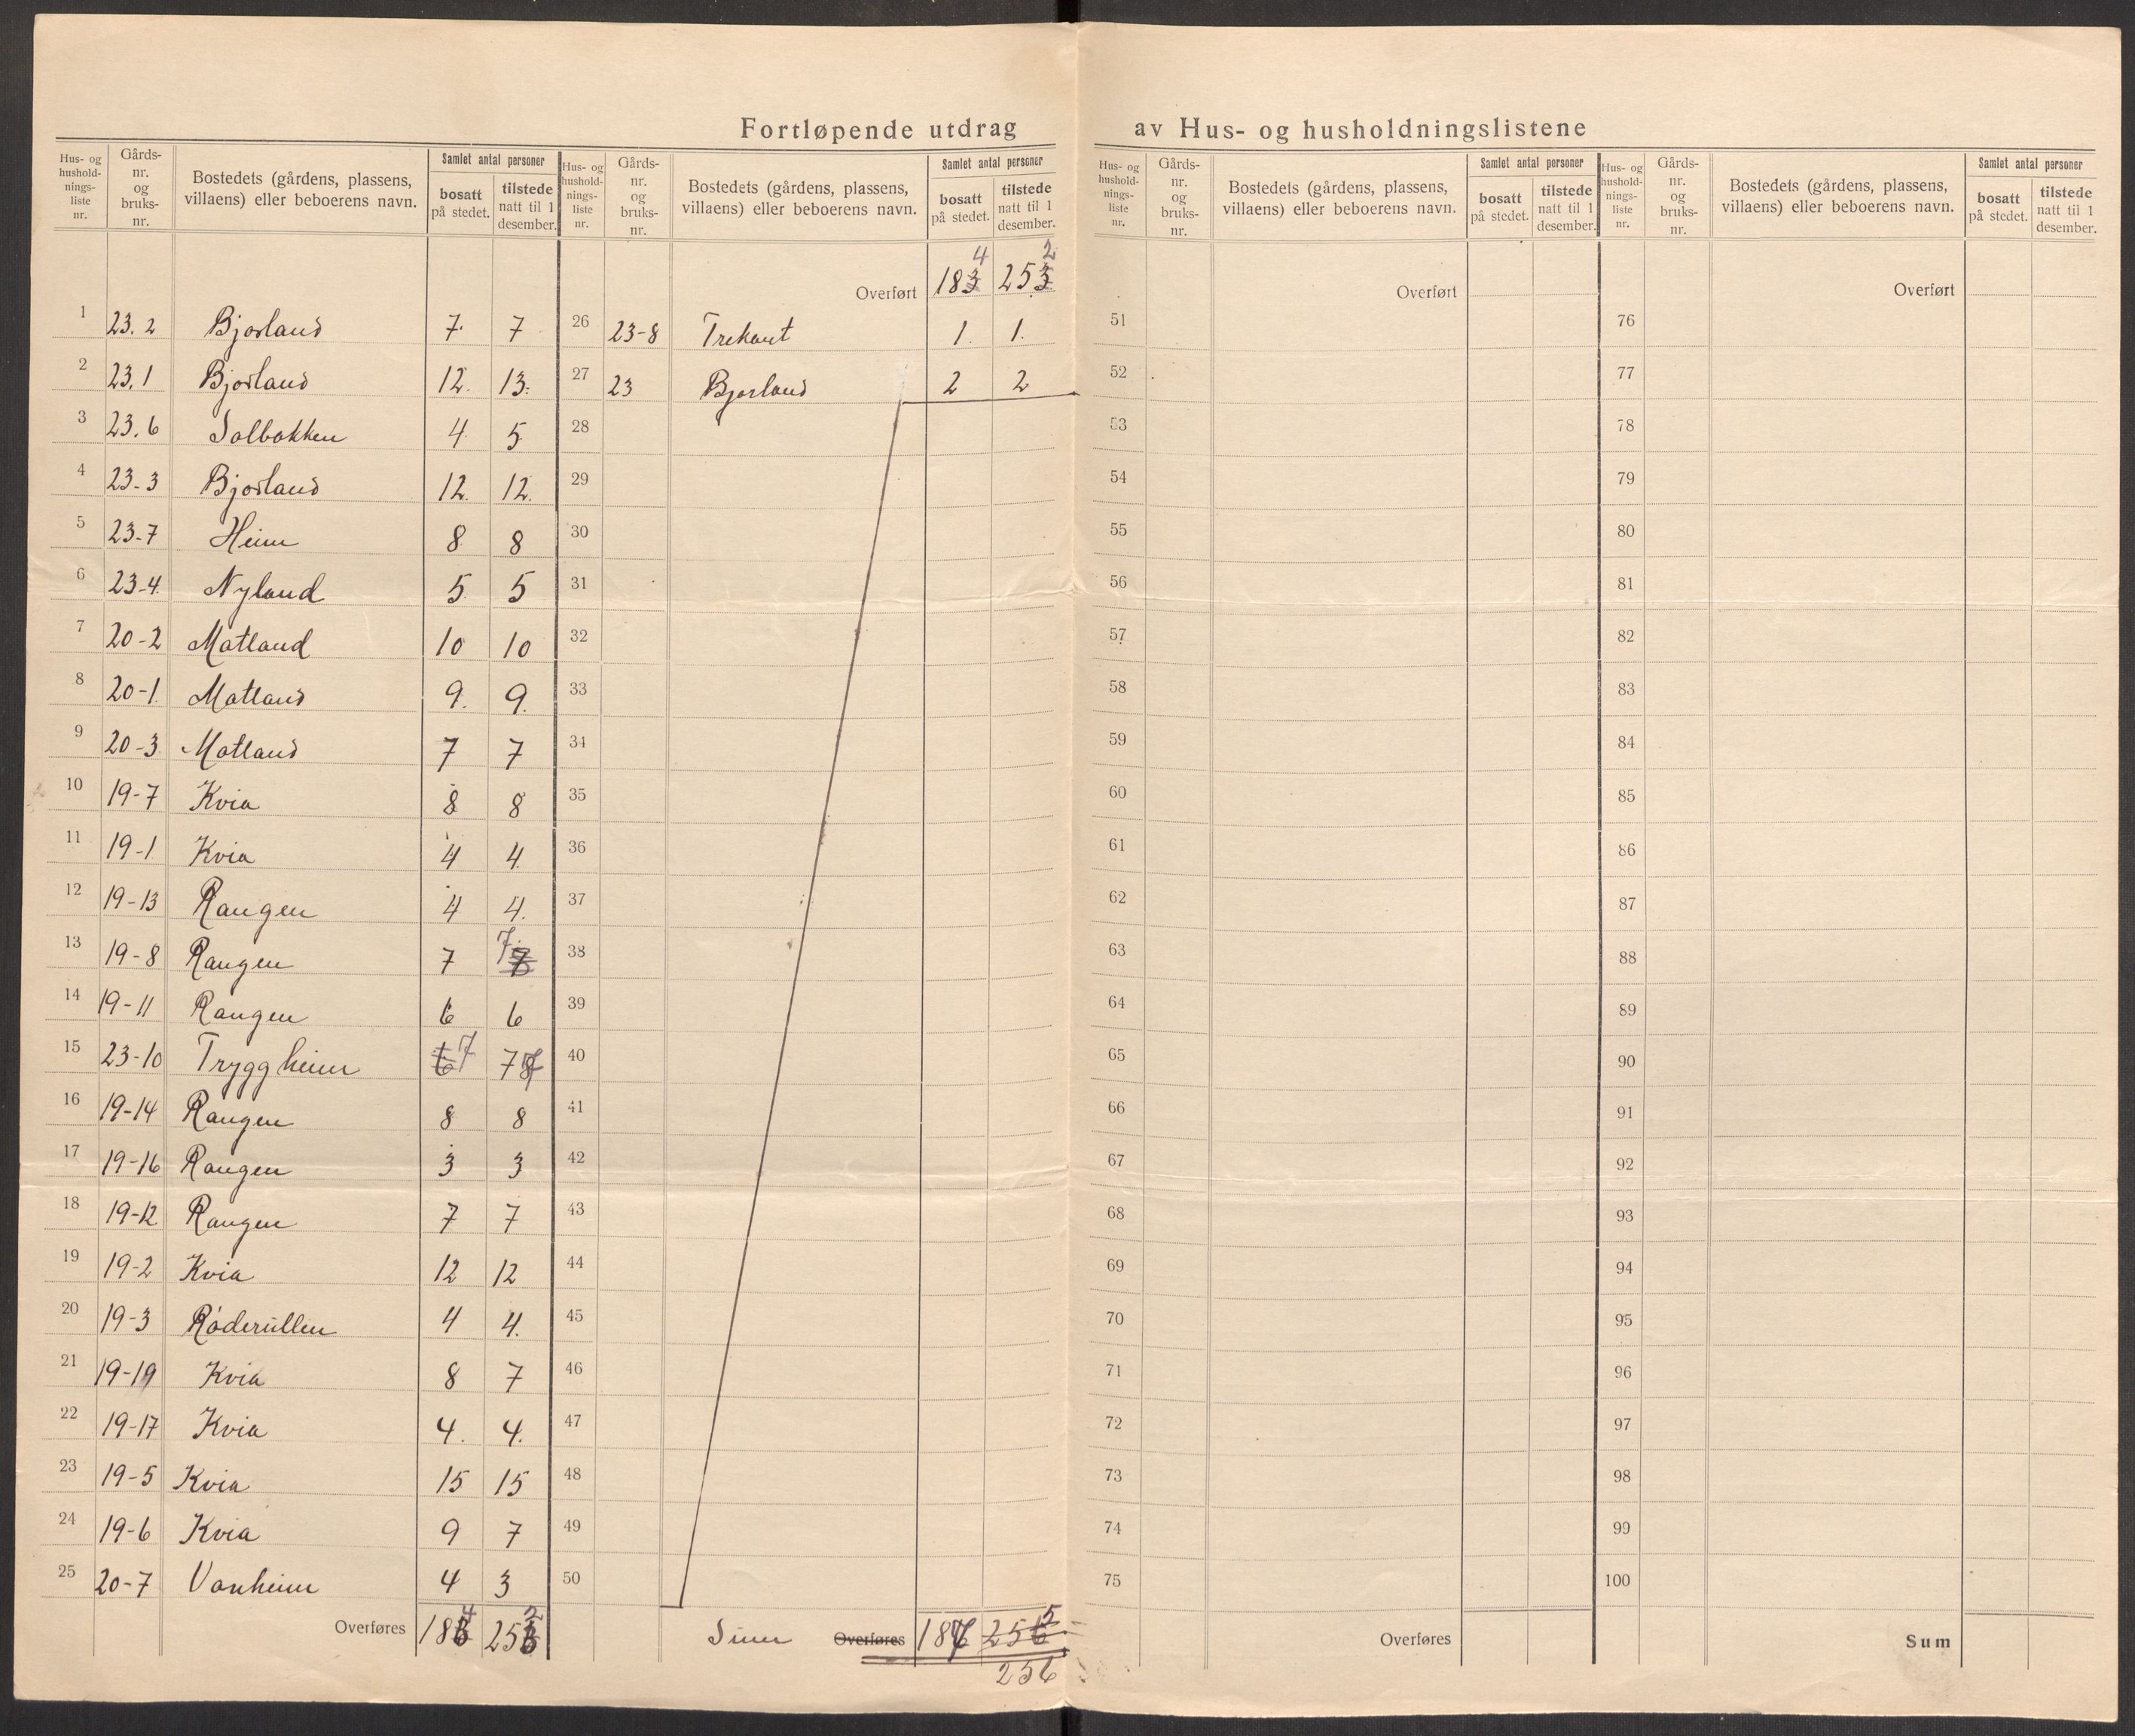 Fortløpende utdrag av Hus- og husholdningslistene
Hus- og hushold- nings- liste nr. Gårds- nr. og bruks- nr. Bostedets (gårdens, plassens, villaens) eller beboerens navn. Samlet antal personer bosatt på stedet. tilstede natt til 1 desember.
1 23.2 Bjorland 7 7
2 23.1 Bjorland 12. 13.
3 23.6 Solbakken 4 5
4 23-3 Bjorland 12. 12.
5 23-7 Heim 8 8
6 23-4 Nyland 5 5
7 20-2 Matland 10 10
8 20-1 Matland 9. 9.
9 20-3 Matland 7 7
10 19-7 Kvia 8 8
11 19-1 Kvia 4 4
12 19-13 Rangen 4 4.
13 19-8 Rangen 7 7
14 19-11 Rangen 6 6
15 23-10 Tryggheim 6 7 7
16 19-14 Rangen 8 8
17 19-16 Rangen 3 3
18 19-12 Rangen 7 7
19 19-2 Kvia 12 12
20 19-3 4 4.
21 19-19 Kvia 8 7
22 19-17 Kvia 4. 4.
23 19-5 Kvia 15 15
24 19-6 Kvia 9 7
25 20-7 Vanheim 4 3
Overføres
Hus- og hushold- nings- liste nr. Gårds- nr. og bruks- nr. Bostedets (gårdens, plassens, villaens) eller beboerens navn. Samlet antal personer bosatt på stedet. tilstede natt til 1 desember.
4 2
Overført 183 253
26 23-8 Trekant 1. 1.
27 23 Bjorland 2 2
28
29
30
31
32
33
34
35
36
37
38
39
40
41
42
43
44
45
46
47
48
49
50
Sum Overføres
256
Hus- og hushold- nings- liste nr. Gårds- nr. og bruks- nr. Bostedets (gårdens, plassens, villaens) eller beboerens navn. Samlet antal personer bosatt på stedet. tilstede natt til 1 desember.
Overført
51
52
53
54
55
56
57
58
59
60
61
62
63
64
65
66
67
68
69
70
71
72
73
74
75
Overføres
Hus- og hushold- nings- liste nr. Gårds- nr. og bruks- nr. Bostedets (gårdens, plassens, villaens) eller beboerens navn. Samlet antal personer bosatt på stedet. tilstede natt til 1 desember.
Overført
76
77
78
79
80
81
82
83
84
85
86
87
88
89
90
91
92
93
94
95
96
97
98
99
100
Sum